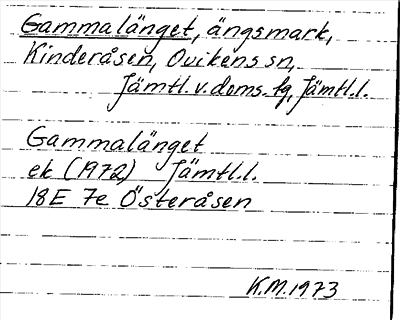 Gammalänget, ängsmark,
Kinderåsen, Ovikens sn,
Jämtl. v. doms. fg, Jämtl.l.
Gammalänget
ek (1972) Jämtl.l.
18E 7e Österåsen
K.M. 1973